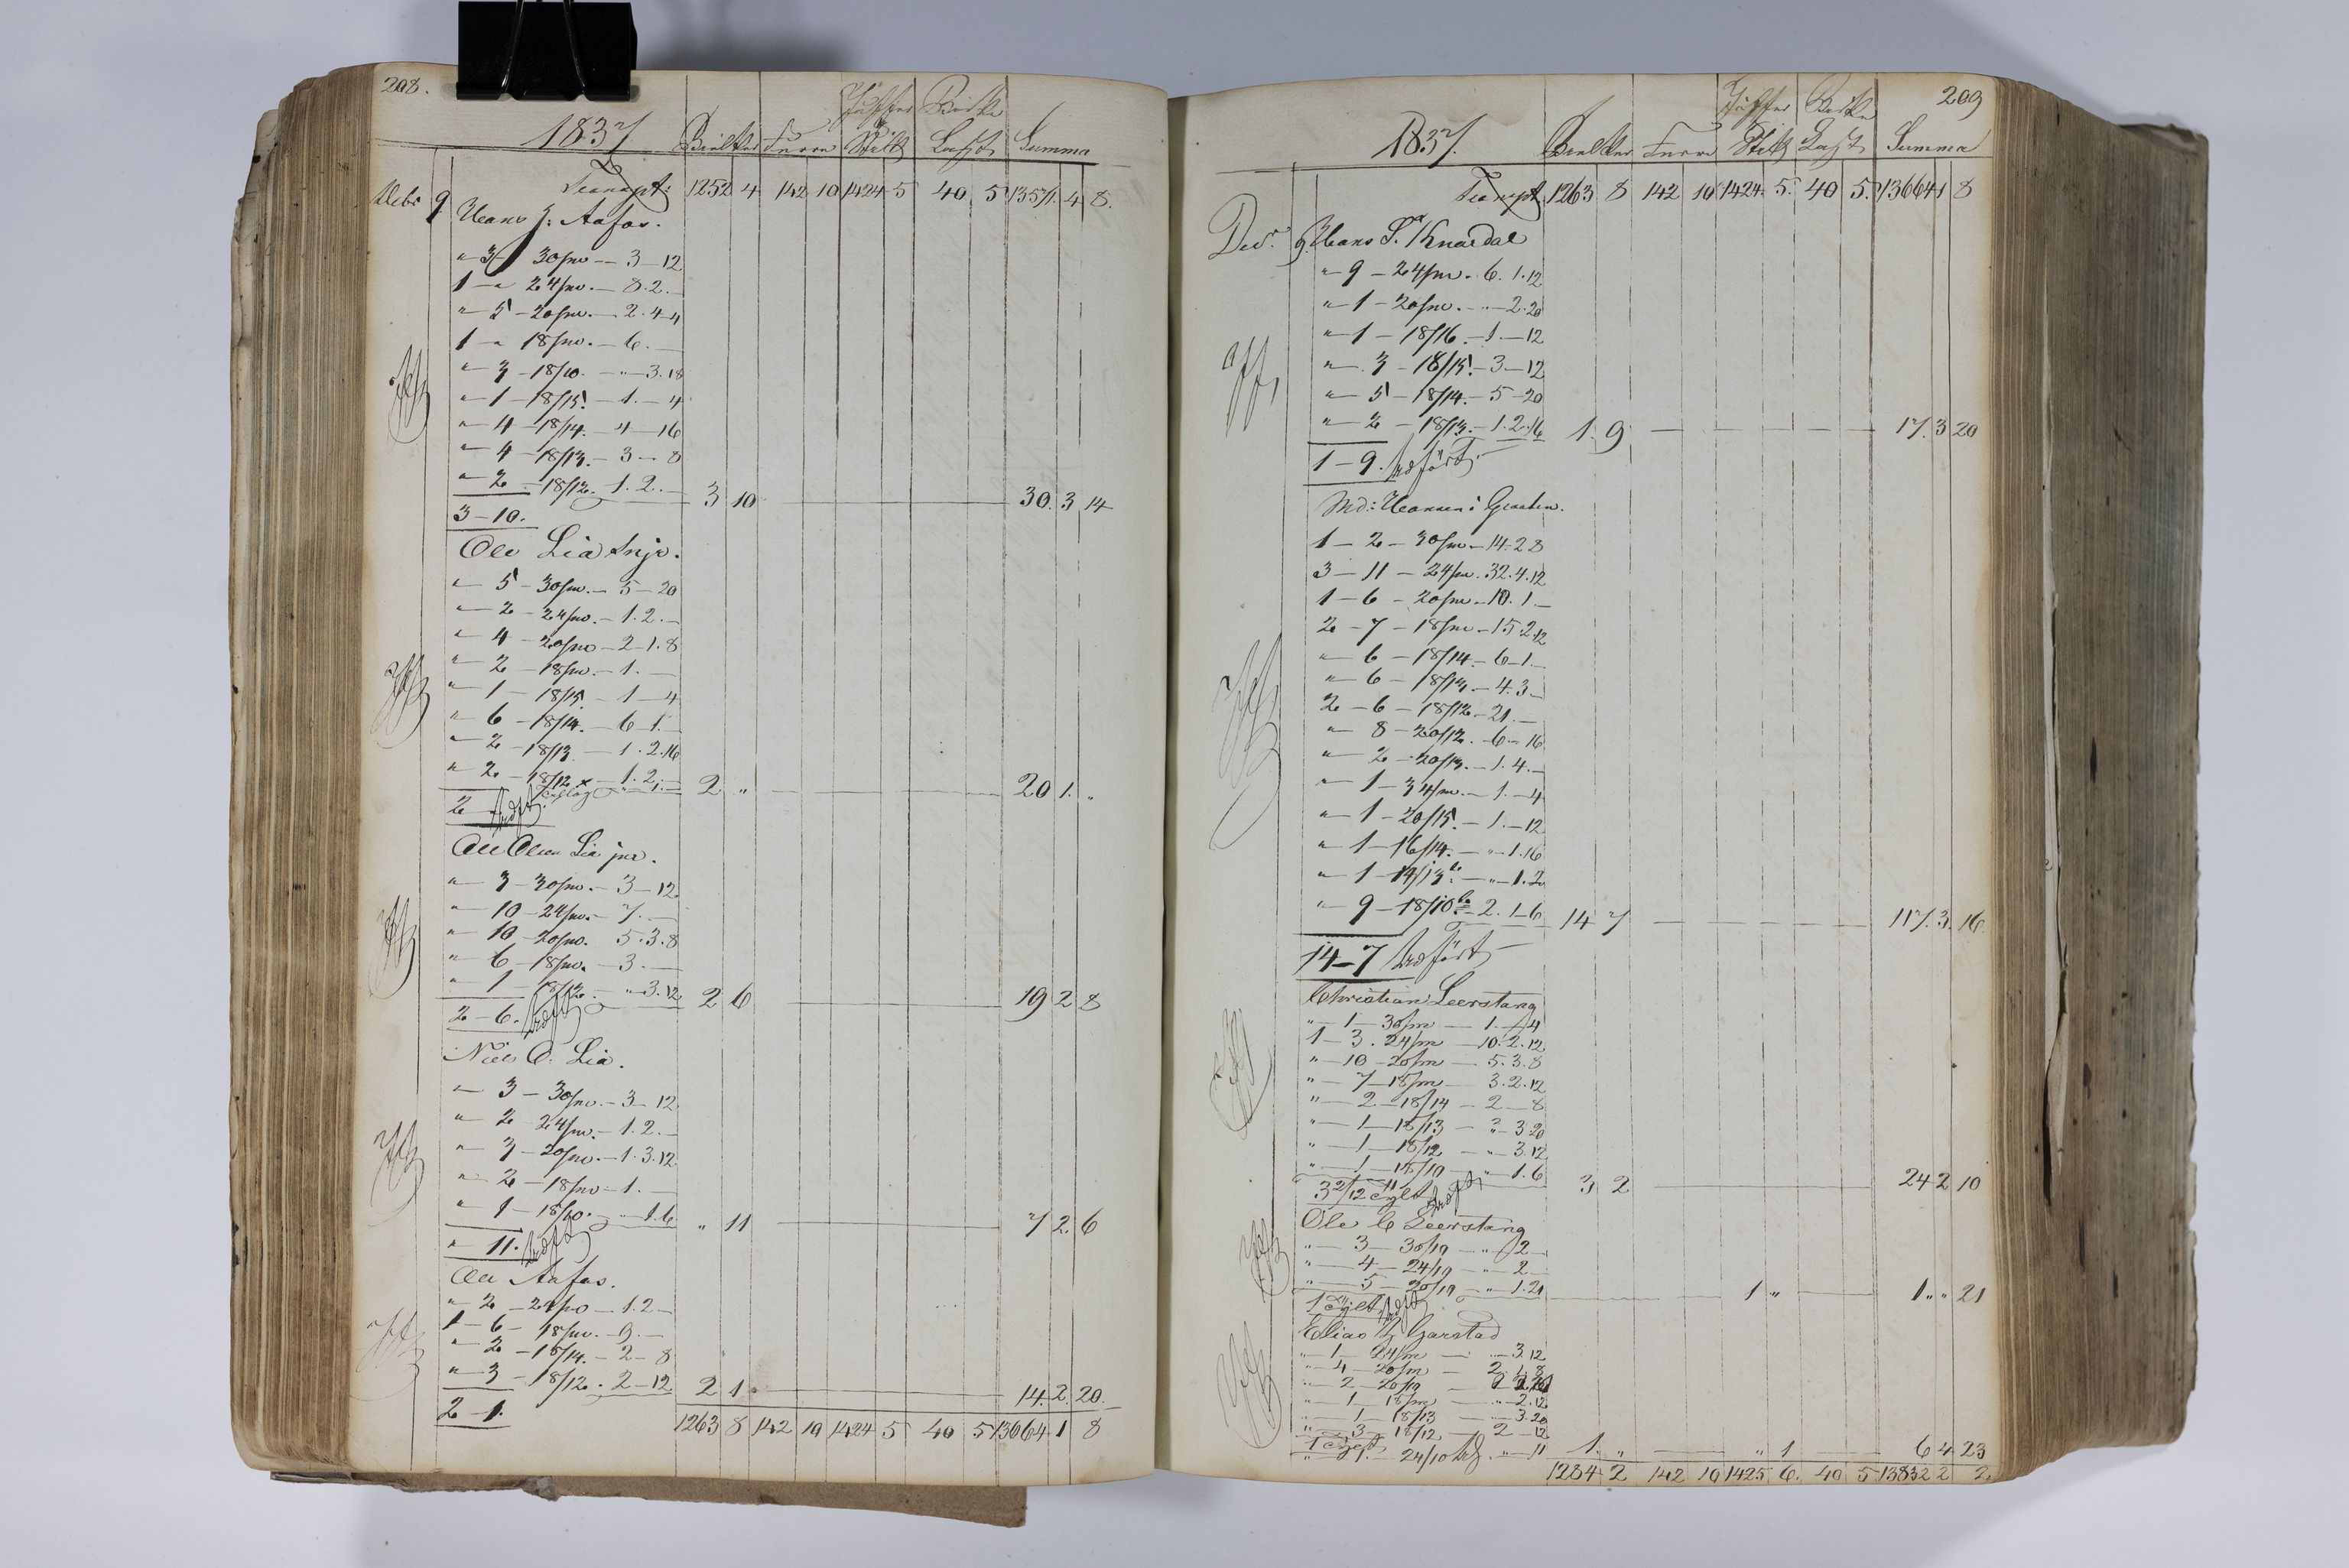 208.
1837
Bielker Furre Juffer Stilk Birke Last Summa
Transpt: 1252 4 142 10 1424 5 40 5 13571. 4 8.
Debr 9. Hans J: Aafos.
" 3 30/no — 3 — 12
1 — " 24/no. — 8. 2. —
" — 5 — 20/no. — 2. 4 — 4
1 — " 18/no. — 6. —
" — 3 — 18/10. — " — 3. 18
" — 1 — 18/15. — 1. — 4
" — 4 — 18/14. — 4 — 16
" — 4 — 18/13. — 3 — 8
" — 2 — 18/12. 1. 2. — 3 10 30. 3 14
3 — 10.
Ole Lia
" — 5 — 30/no. — 5 — 20
" — 2 — 24/no. — 1. 2. —
" — 4 — 20/no — 2 — 1. 8
" — 2 — 18/no. — 1. —
" — 1 — 18/15. — 1 — 4
" — 6 — 18/14. — 6 1. —
" — 2 — 18/13 — 1. 2. 16
" — 2 — 18/12 — 1. 2. — 2 " 20 1. "
2
Ole Olsen Lia jnr.
" — 3 — 30/no. — 3 — 12
" — 10 — 24/no. — 7. —
" — 10 — 20/no. 5. 3. 8
" — 6 — 18/no. — 3. —
" — 1 — 18/12. — " 3. 12 2 6 19 2 8
2 — 6.
Niels O. Lia.
" — 3 — 30/no. — 3 — 12
" — 2 24/no. — 1. 2. —
" — 3 — 20/no. — 1. 3. 12
" — 2 — 18/no — 1. —
" — 1 — 18/10. — " — 1. 6 " 11 7 2 6
" 11.
Ole Aafos.
" — 2 — 24/no — 1. 2 —
1 — 6 — 18/no. — 9. —
" — 2 — 18/14. — 2 — 8
" — 3 — 18/12. — 2 — 12 2 1. 14. 2. 20.
2 — 1.
1263 8 142 10 1424 5 40 5 13664 1 8
209
1837.
Bielker Furre Juffer Stilk Birke Last Summa
Transpt 1263 8 142 10 1424 5. 40 5. 13664 1 8
Decr. 9. Hans S. Knardal
" — 9 — 24/no. — 6. 1. 12
" — 1 — 20/no. — " — 2. 20
" — 1 — 18/16. — 1. — 12
" — 3 — 18/15. — 3 — 12
" — 5 — 18/14. — 5 — 20
" — 2 — 18/13. — 1. 2. 16 1. 9 17. 3 20
1 — 9. Udfört
Md: Hansen i Graaten.
1 — 2 — 30/no — 14. 2 8
3 — 11 — 24/no. 32. 4. 12
1 — 6 — 20/no — 10. 1. —
2 — 7 — 18/no — 15. 2. 12
" — 6 — 18/14. — 6 — 1. —
" — 6 — 18/13. — 4. 3 —
2 — 6 — 18/12. — 21. —
" — 8 — 20/12. — 6 — 16
" — 2 — 20/13. — 1. 4. —
" — 1 — 34/no. — 1. — 4
" — 1 — 20/15. — 1. — 12
" — 1 — 16/14. — " — 1. 16
" — 1 — 14/13 — " — 1. 2
" — 9 — 18/10 — 2. 1 — 6 14 7 117. 3. 16
14 — 7 Udfört
Christian Leerstang
" — 1 — 30/no — 1. — 4
1 — 3. 24/no — 10. 2. 12
" — 10 — 20/no — 5. 3. 8
" — 7 — 18/no — 3. 2. 12
" — 2 — 18/14 — 2 — 8
" — 1 — 18/13 — " 3 20
" — 1 — 18/12 — " — 3. 12
" — 1 — 18/10 — " — 1. 6 3 2 24 2 10
3 2/12 tylt
Ole C Leerstang
" — 3 — 30/10 — " 2 —
" — 4 — 24/10 — " 2 —
" — 5 — 20/10 — " 1. 21 1 " 1 " " 21
1 tylt
Elias Garstad
" — 1 — 24/no — " — 3. 12
" — 4 — 20/no — 2. 1. 8
" — 2 — 20/10
" — 1 — 18/no — " — 2. 12
" — 1 — 18/13 — " — 3. 20
" — 3 — 18/12 — 2 — 12
1 tylt 24/10 " — 11 1. " " 1 6 4 23
1284 2 142 10 1425 6. 40 5 13832 2 2.